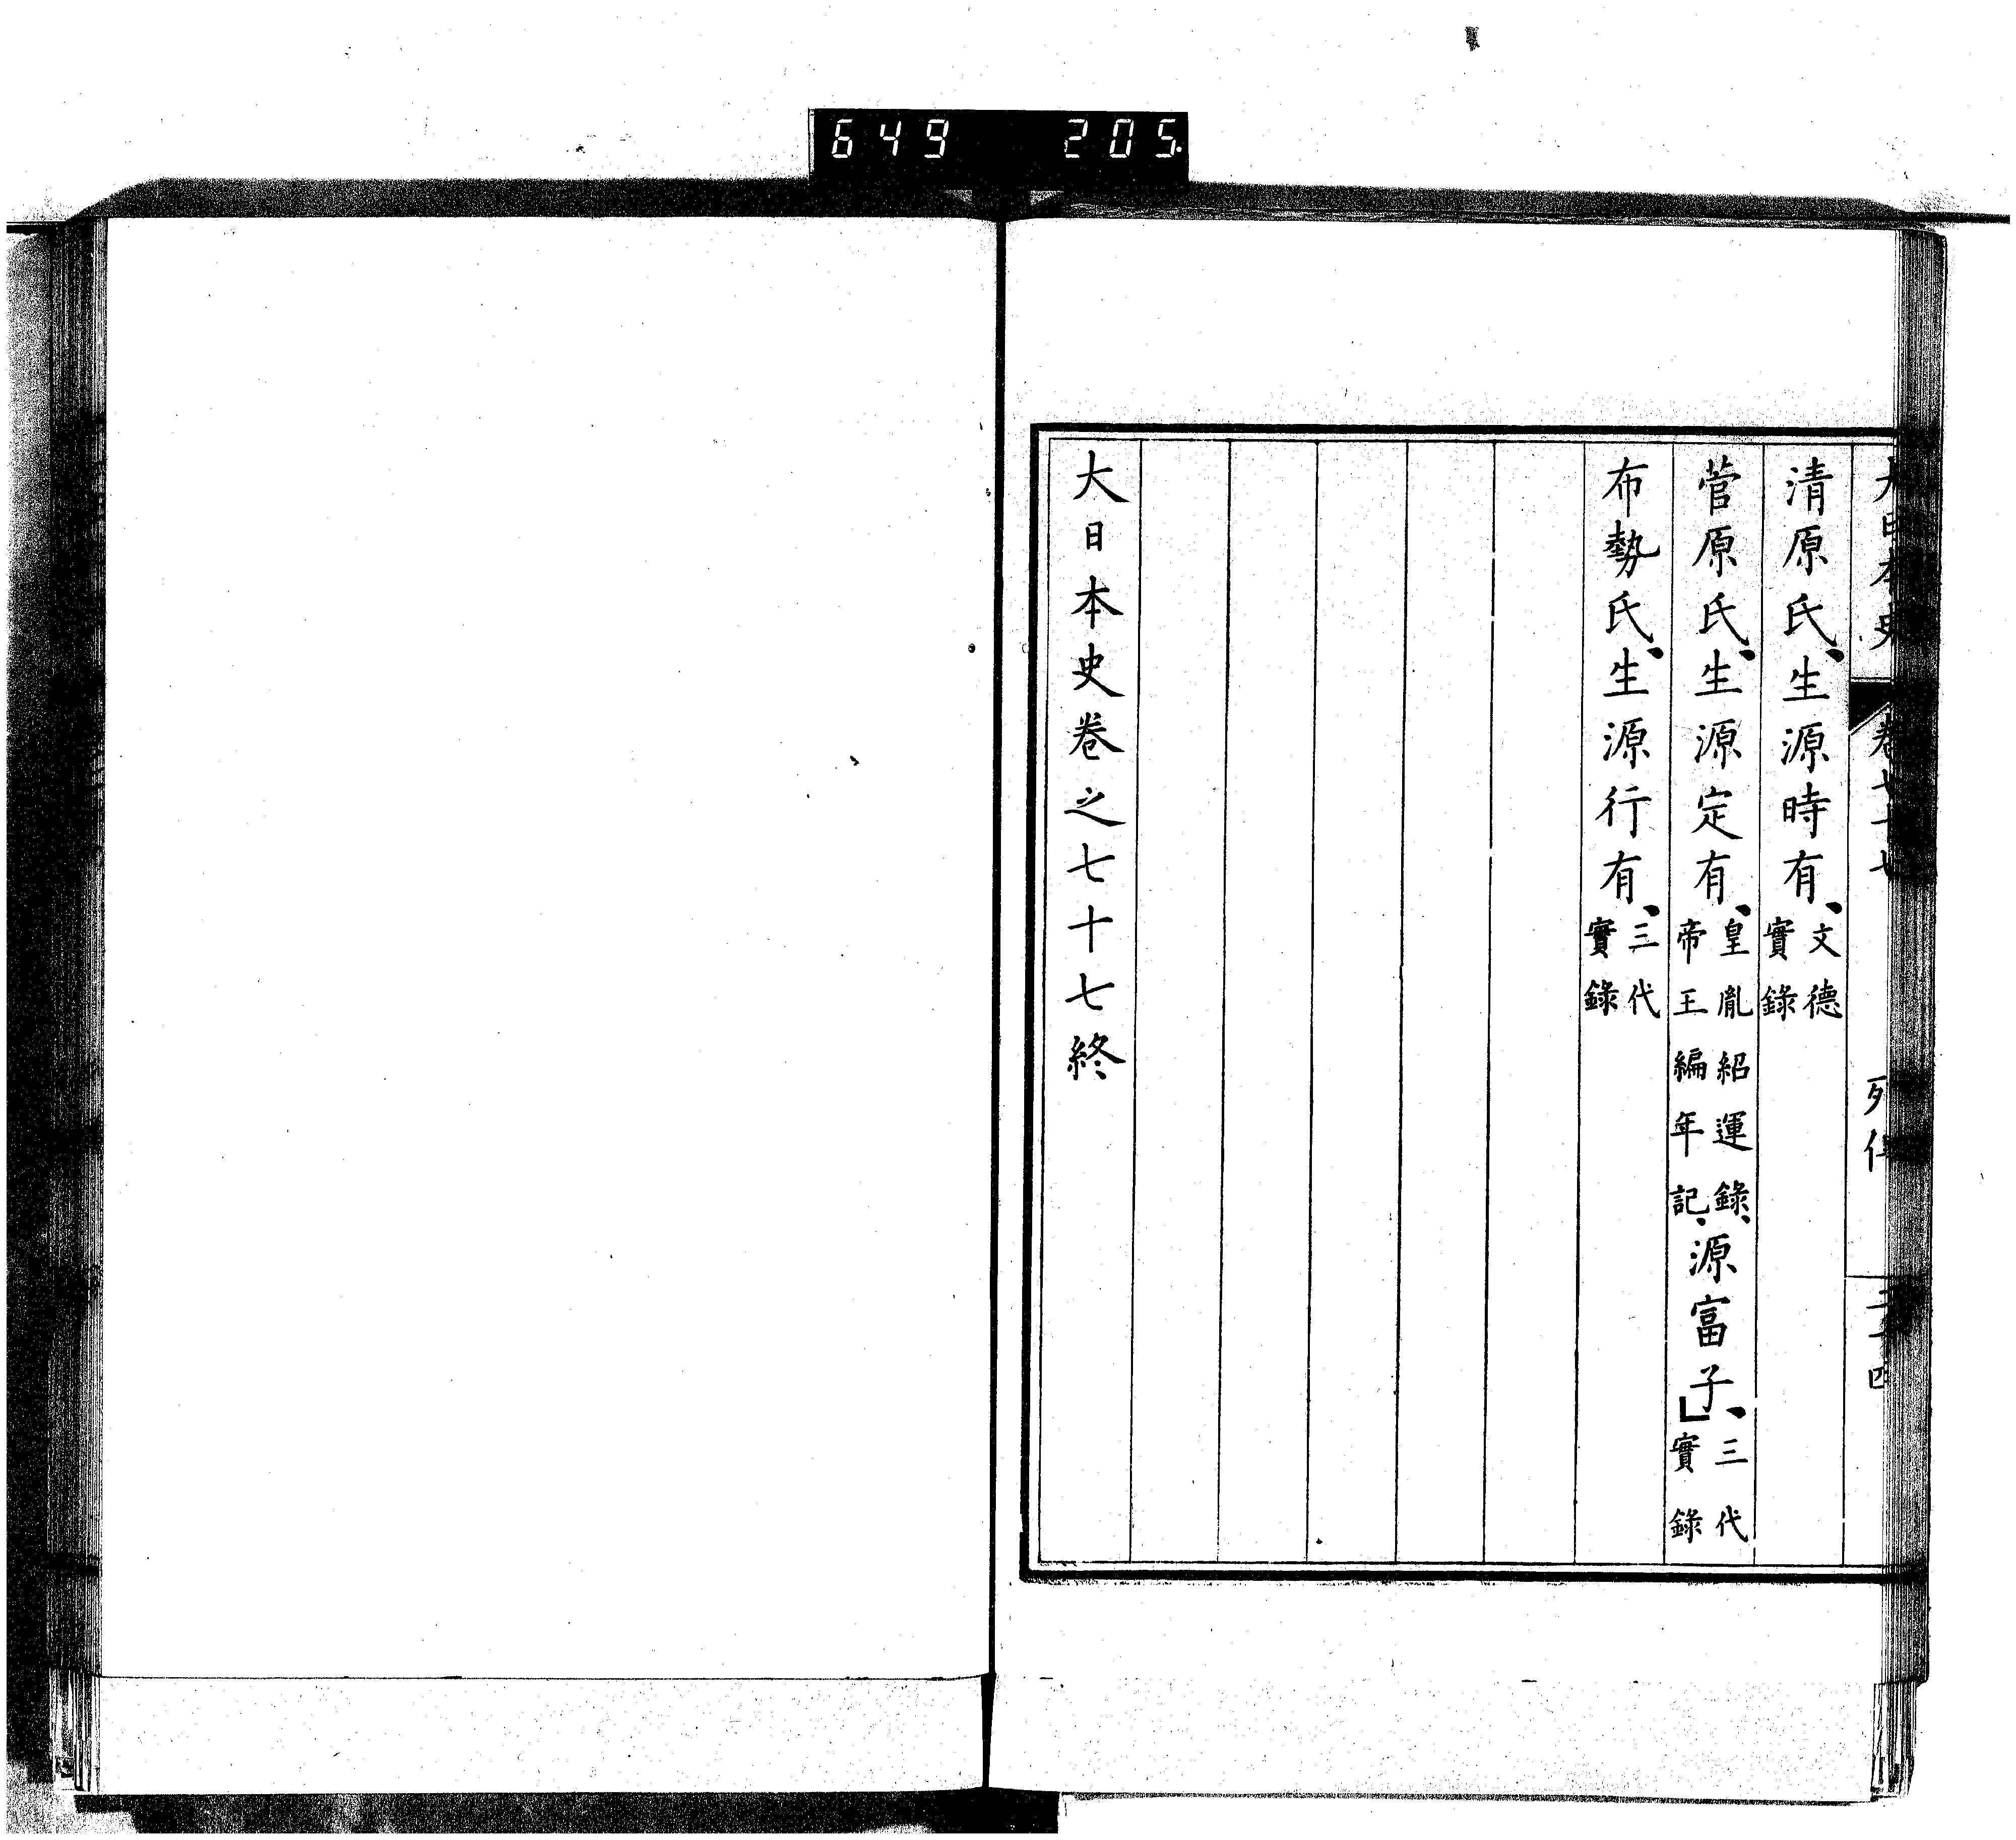 649 205.
大日本史 卷七十七 列傳 二十四
清原氏、生源時有、文德實錄
菅原氏、生源定有、皇胤紹運錄、帝王編年記、源富子、」三代實錄
布勢氏、生源行有、三代實錄
大日本史卷之七十七終